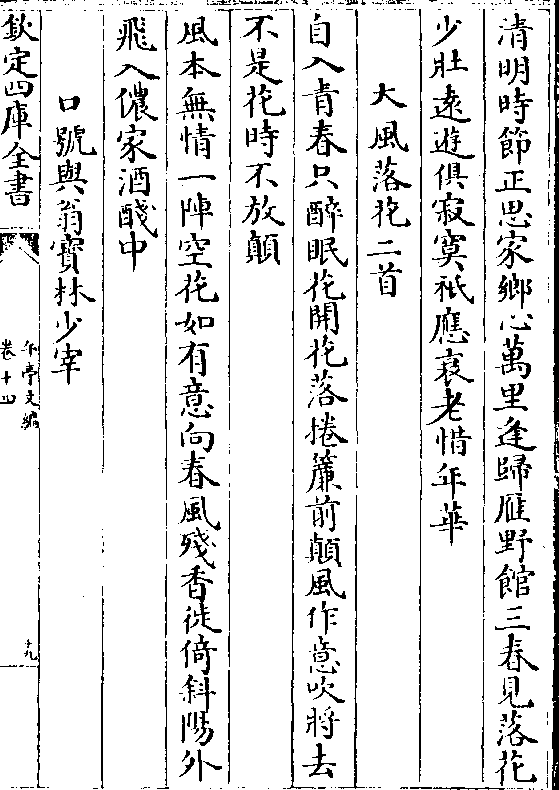 清明時節正思家鄉心萬里逢歸雁野館三春見落花
少壯遠遊俱寂寞祇應衰老惜年華
大風落花二首
自入青春只醉眠花開花落捲簾前顛風作意吹將去
不是花時不放顛
風本無情一陣空花如有意向春風殘香徙倚斜陽外
飛入儂家酒醆中
口號與翁寶林少宰
欽定四庫全書
午亭文編
卷十四
十九